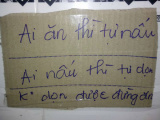 Ai ăn thì tự nấu
Ai nấu thì tự dọn
K° dọn được đừng ăn